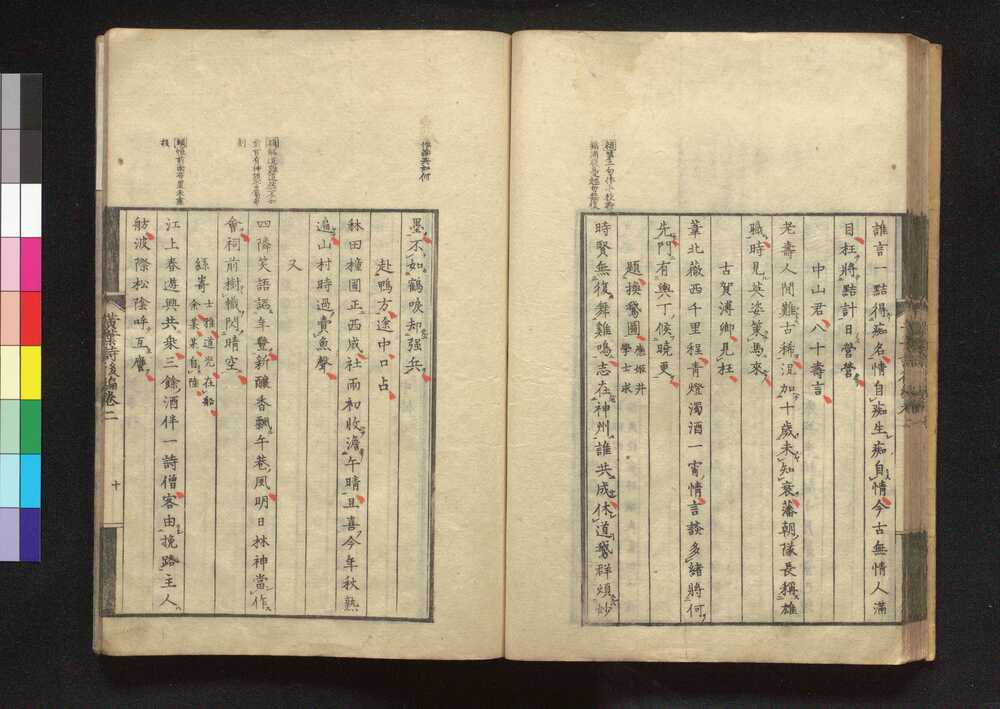 誰言一點得痴名情自痴生痴自情今古無情人滿
目枉將點計日營營
中山君八十壽言
老壽人間難古稀況加十歲未知衰藩朝隊長稱雄
職時見英姿策馬來
古賀溥卿見枉
葦北薇西千里程青燈濁酒一宵情言談多緒將何
先門有輿丁候曉更
題換鵞圖 應姬井學士求
時賢無復舞雞鳴志在神州誰共成休道鵞群煩妙
墨不如鶴唳却强兵
赴鴨方途中口占
秫田穜圃正西成社雨初收澹午晴且喜今年秋熟
遍山村時過賣魚聲
又
四隣笑語話年豐新釀香飄午巷風明日林神當作
會祠前樹幟閃晴空
士雅道光在船
余某某自陸
江上春遊興共乘三餘酒伴一詩僧客由挽路主人
舫波際松陰呼互譍
黃葉詩後編卷二
十
作諧美如何